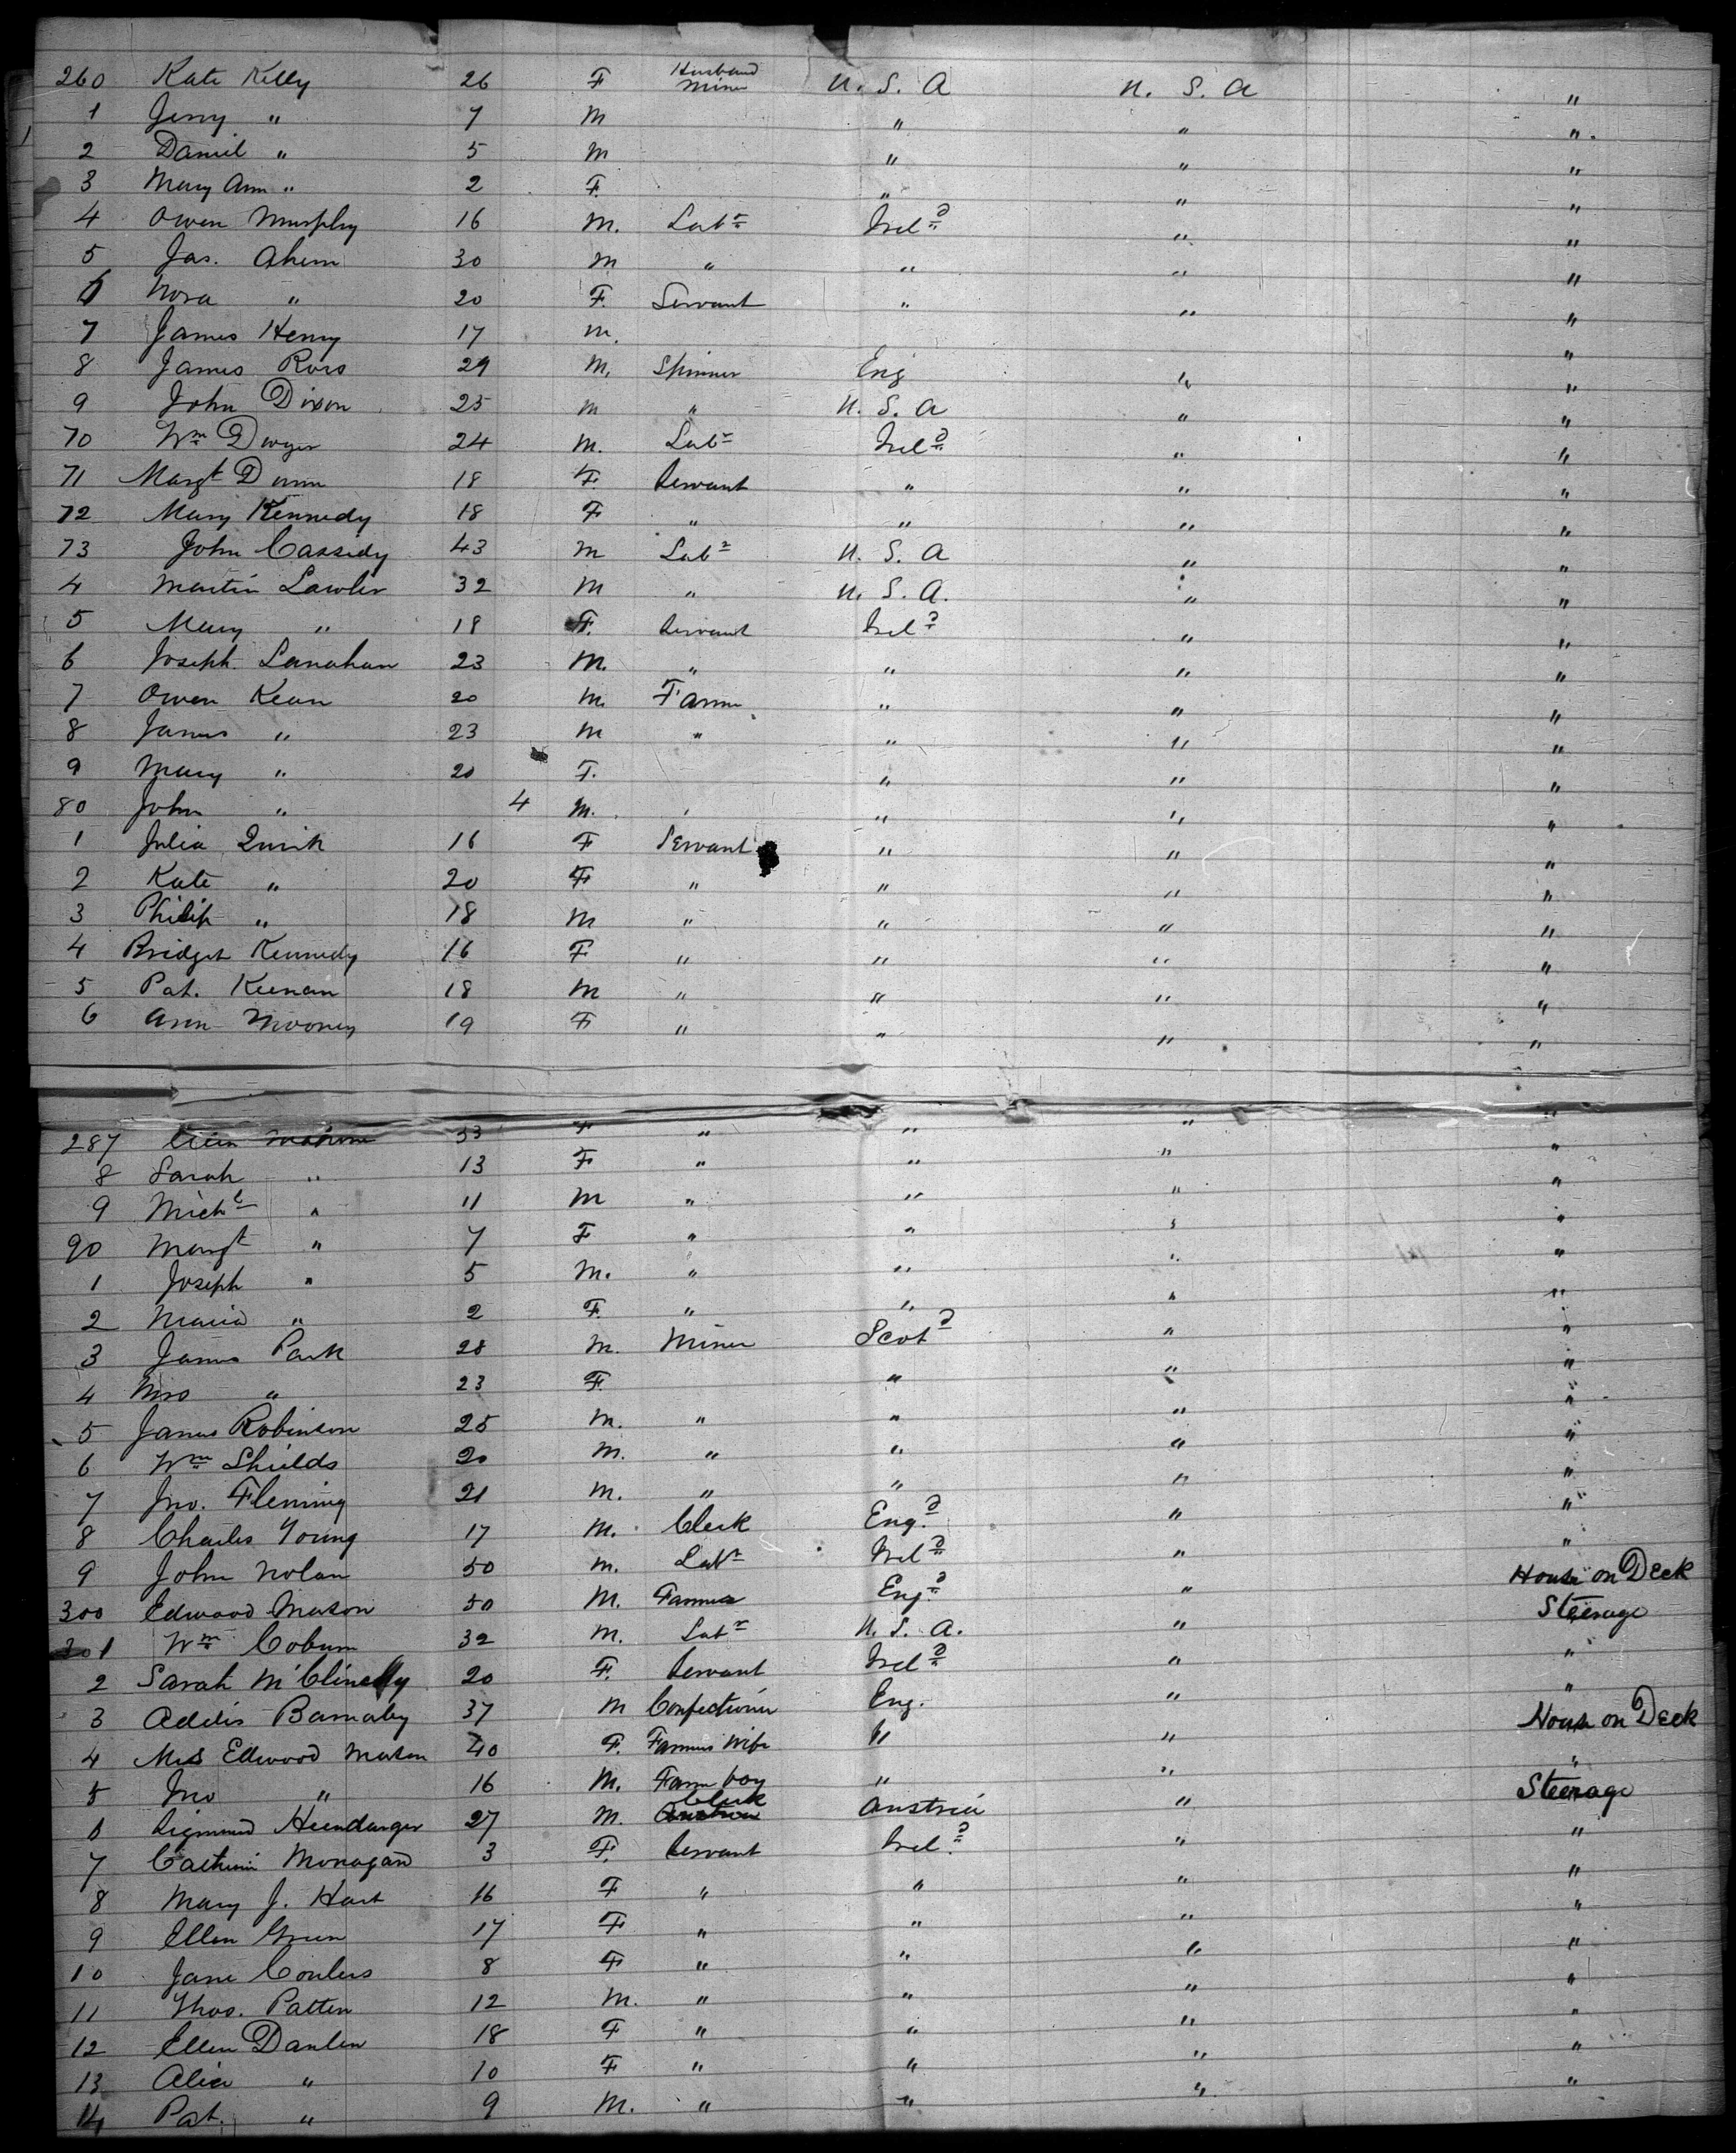 260 Kate Kelly 26 F Husband Miner U. S. A U. S. A "
1 Jerry " 7 M " " "
2 Daniel " 5 M " " "
3 Mary Ann " 2 F. " " "
4 Owen Murphy 16 M. Labr Ireld " "
5 Jas. Ahern 30 M " " " "
6 Nora " 20 F. Servant " " "
7 James Henry 17 M. "
8 James Ross 29 M. Spinner Eng " "
9 John Dixon 25 M " U. S. A " "
70 Wm Dwyer 24 M. Labr Ireld " "
71 Margt Dunn 18 F Servant " " "
72 Mary Kennedy 18 F " " " "
73 John Cassidy 43 M Labr U. S. A " "
4 Martin Lawler 32 M " U. S. A. " "
5 Mary " 18 F. Servant Ireld " "
6 Joseph Lanahan 23 M. " " " "
7 Owen Kean 20 M. Farmr " " "
8 James " 23 M " " " "
9 Mary " 20 F. " " "
80 John " 4 M. " " "
1 Julia Quirk 16 F Servant " " "
2 Kate " 20 F " " " "
3 Philip " 18 M " " " "
4 Bridget Kennedy 16 F " " " "
5 Pat. Keenan 18 M " " " "
6 Ann Mooney 19 F " " " "
287 33 F " " " "
8 Sarah " 13 F " " " "
9 Michl " 11 M " " " "
90 Margt " 7 F " " " "
1 Joseph " 5 M. " " " "
2 Maria " 2 F. " " " "
3 James Park 28 M. Miner Scotd " "
4 Mrs " 23 F. " " "
5 James Robinson 25 M. " " " "
6 Wm Shields 20 M. " " " "
7 Jno. Fleming 21 M. " " " "
8 Charles Young 17 M. Clerk Engd " "
9 John Nolan 50 M. Labr Ireld " "
300 Edwood Mason 50 M. Farmer Engd " House on Deck
301 Wm Coburn 32 M. Labr U. S. A. " Steerage
2 Sarah 20 F. Servant Ireld " "
3 Addis Barnaby 37 M Confectioner Eng. " "
4 Mrs Edwood Mason 40 F. Farmers Wife " " House on Deck
5 Jno " 16 M. Farm boy " " "
6 Sigmund 27 M. Clerk Austria " Steerage
7 Catherine Monagan 3 F. Servant Ireld " "
8 Mary J. Hart 16 F " " " "
9 Ellen Green 17 F " " " "
10 Jane 8 F " " " "
11 Thos. Patten 12 M. " " " "
12 Ellen Danlen 18 F " " " "
13 Alice " 10 F " " " "
14 Pat. " 9 M. " " " "